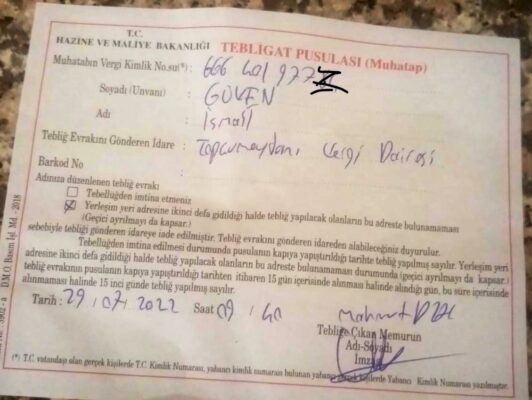 T.C.
HAZİNE VE MALİYE BAKANLIĞI
TEBLİGAT PUSULASI (Muhatap)
Muhatabın Vergi Kimlik No.su(*) : 666 401 977
Soyadı (Unvanı) : GÜVEN
Adı : İsmail
Tebliğ Evrakını Gönderen İdare : Topçumeydanı Vergi Dairesi
Barkod No :
Adınıza düzenlenen tebliğ evrakı
Tebellüğden imtina etmeniz
Yerleşim yeri adresine ikinci defa gidildiği halde tebliğ yapılacak olanların bu adreste bulunamaması
(Geçici ayrılmayı da kapsar.)
sebebiyle tebliği gönderen idareye iade edilmiştir. Tebliğ evrakını gönderen idareden alabileceğiniz duyurulur.
Tebellüğden imtina edilmesi durumunda pusulanın kapıya yapıştırıldığı tarihte tebliğ yapılmış sayılır. Yerleşim yeri
adresine ikinci defa gidildiği halde tebliğ yapılacak olanların bu adreste bulunamaması durumunda (geçici ayrılmayı da kapsar)
tebliğ evrakının pusulanın kapıya yapıştırıldığı tarihten itibaren 15 gün içerisinde alınması halinde alındığı gün, bu süre içerisinde
alınmaması halinde 15 inci günde tebliğ yapılmış sayılır.
Tarih : 29/07/2022 Saat 09:40
Mahmut
Tebliğe Çıkan Memurun
Adı-Soyadı
İmzası
(*) T.C. vatandaşı olan gerçek kişilerde T.C. Kimlik Numarası, yabancı kimlik numarası bulunan yabancı gerçek kişilerde Yabancı Kimlik Numarası yazılmıştır.
D.M.O. Basım İşl. Md. - 2018